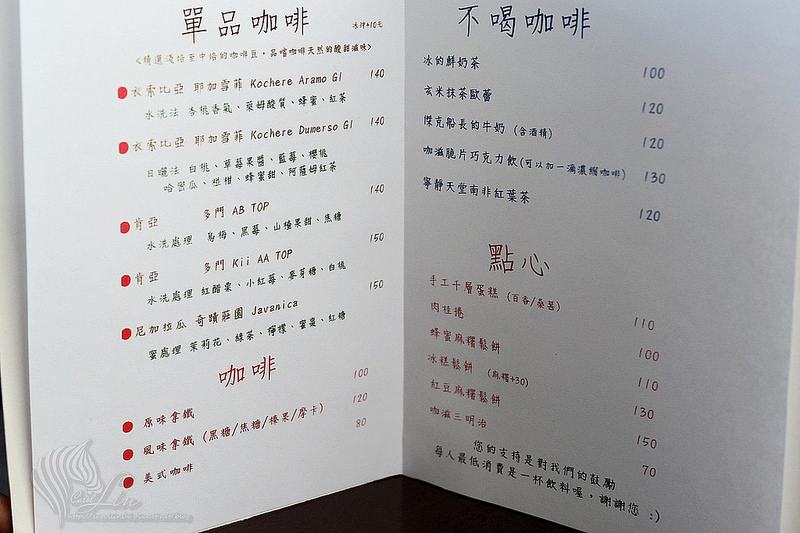 單品咖啡
冰沖+10元
<精選淺焙至中焙的咖啡豆,品嚐咖啡天然的酸甜滋味>
衣索比亞 耶加雪菲 Kochere Aramo G1 140
水洗法 杏桃香氣、萊姆酸質、蜂蜜、紅茶
衣索比亞 耶加雪菲 Kochere Dumerso G1 140
日曬法 白桃、草莓果醬、藍莓、櫻桃
哈密瓜、椪柑、蜂蜜甜、阿薩姆紅茶
肯亞 多門 AB TOP 140
水洗處理 烏梅、黑莓、山楂果甜、焦糖
肯亞 多門 Kii AA TOP 150
水洗處理 紅醋栗、小紅莓、麥芽糖、白桃
尼加拉瓜 奇蹟莊園 Javanica 150
蜜處理 茉莉花、綠茶、檸檬、蜜棗、紅糖
咖啡
原味拿鐵 100
風味拿鐵 (黑糖/焦糖/榛果/摩卡) 120
美式咖啡 80
不喝咖啡
冰的鮮奶茶 100
玄米抹茶歐蕾 120
傑克船長的牛奶 (含酒精) 120
咖滋脆片巧克力飲(可以加一滴濃縮咖啡) 130
寧靜天堂南非紅葉茶 120
點心
手工千層蛋糕 (百香/桑葚) 110
肉桂捲 100
蜂蜜麻糬鬆餅 110
冰糕鬆餅 (麻糬+30) 130
紅豆麻糬鬆餅 150
咖滋三明治 70
您的支持是對我們的鼓勵
每人最低消費是一杯飲料喔,謝謝您 :)